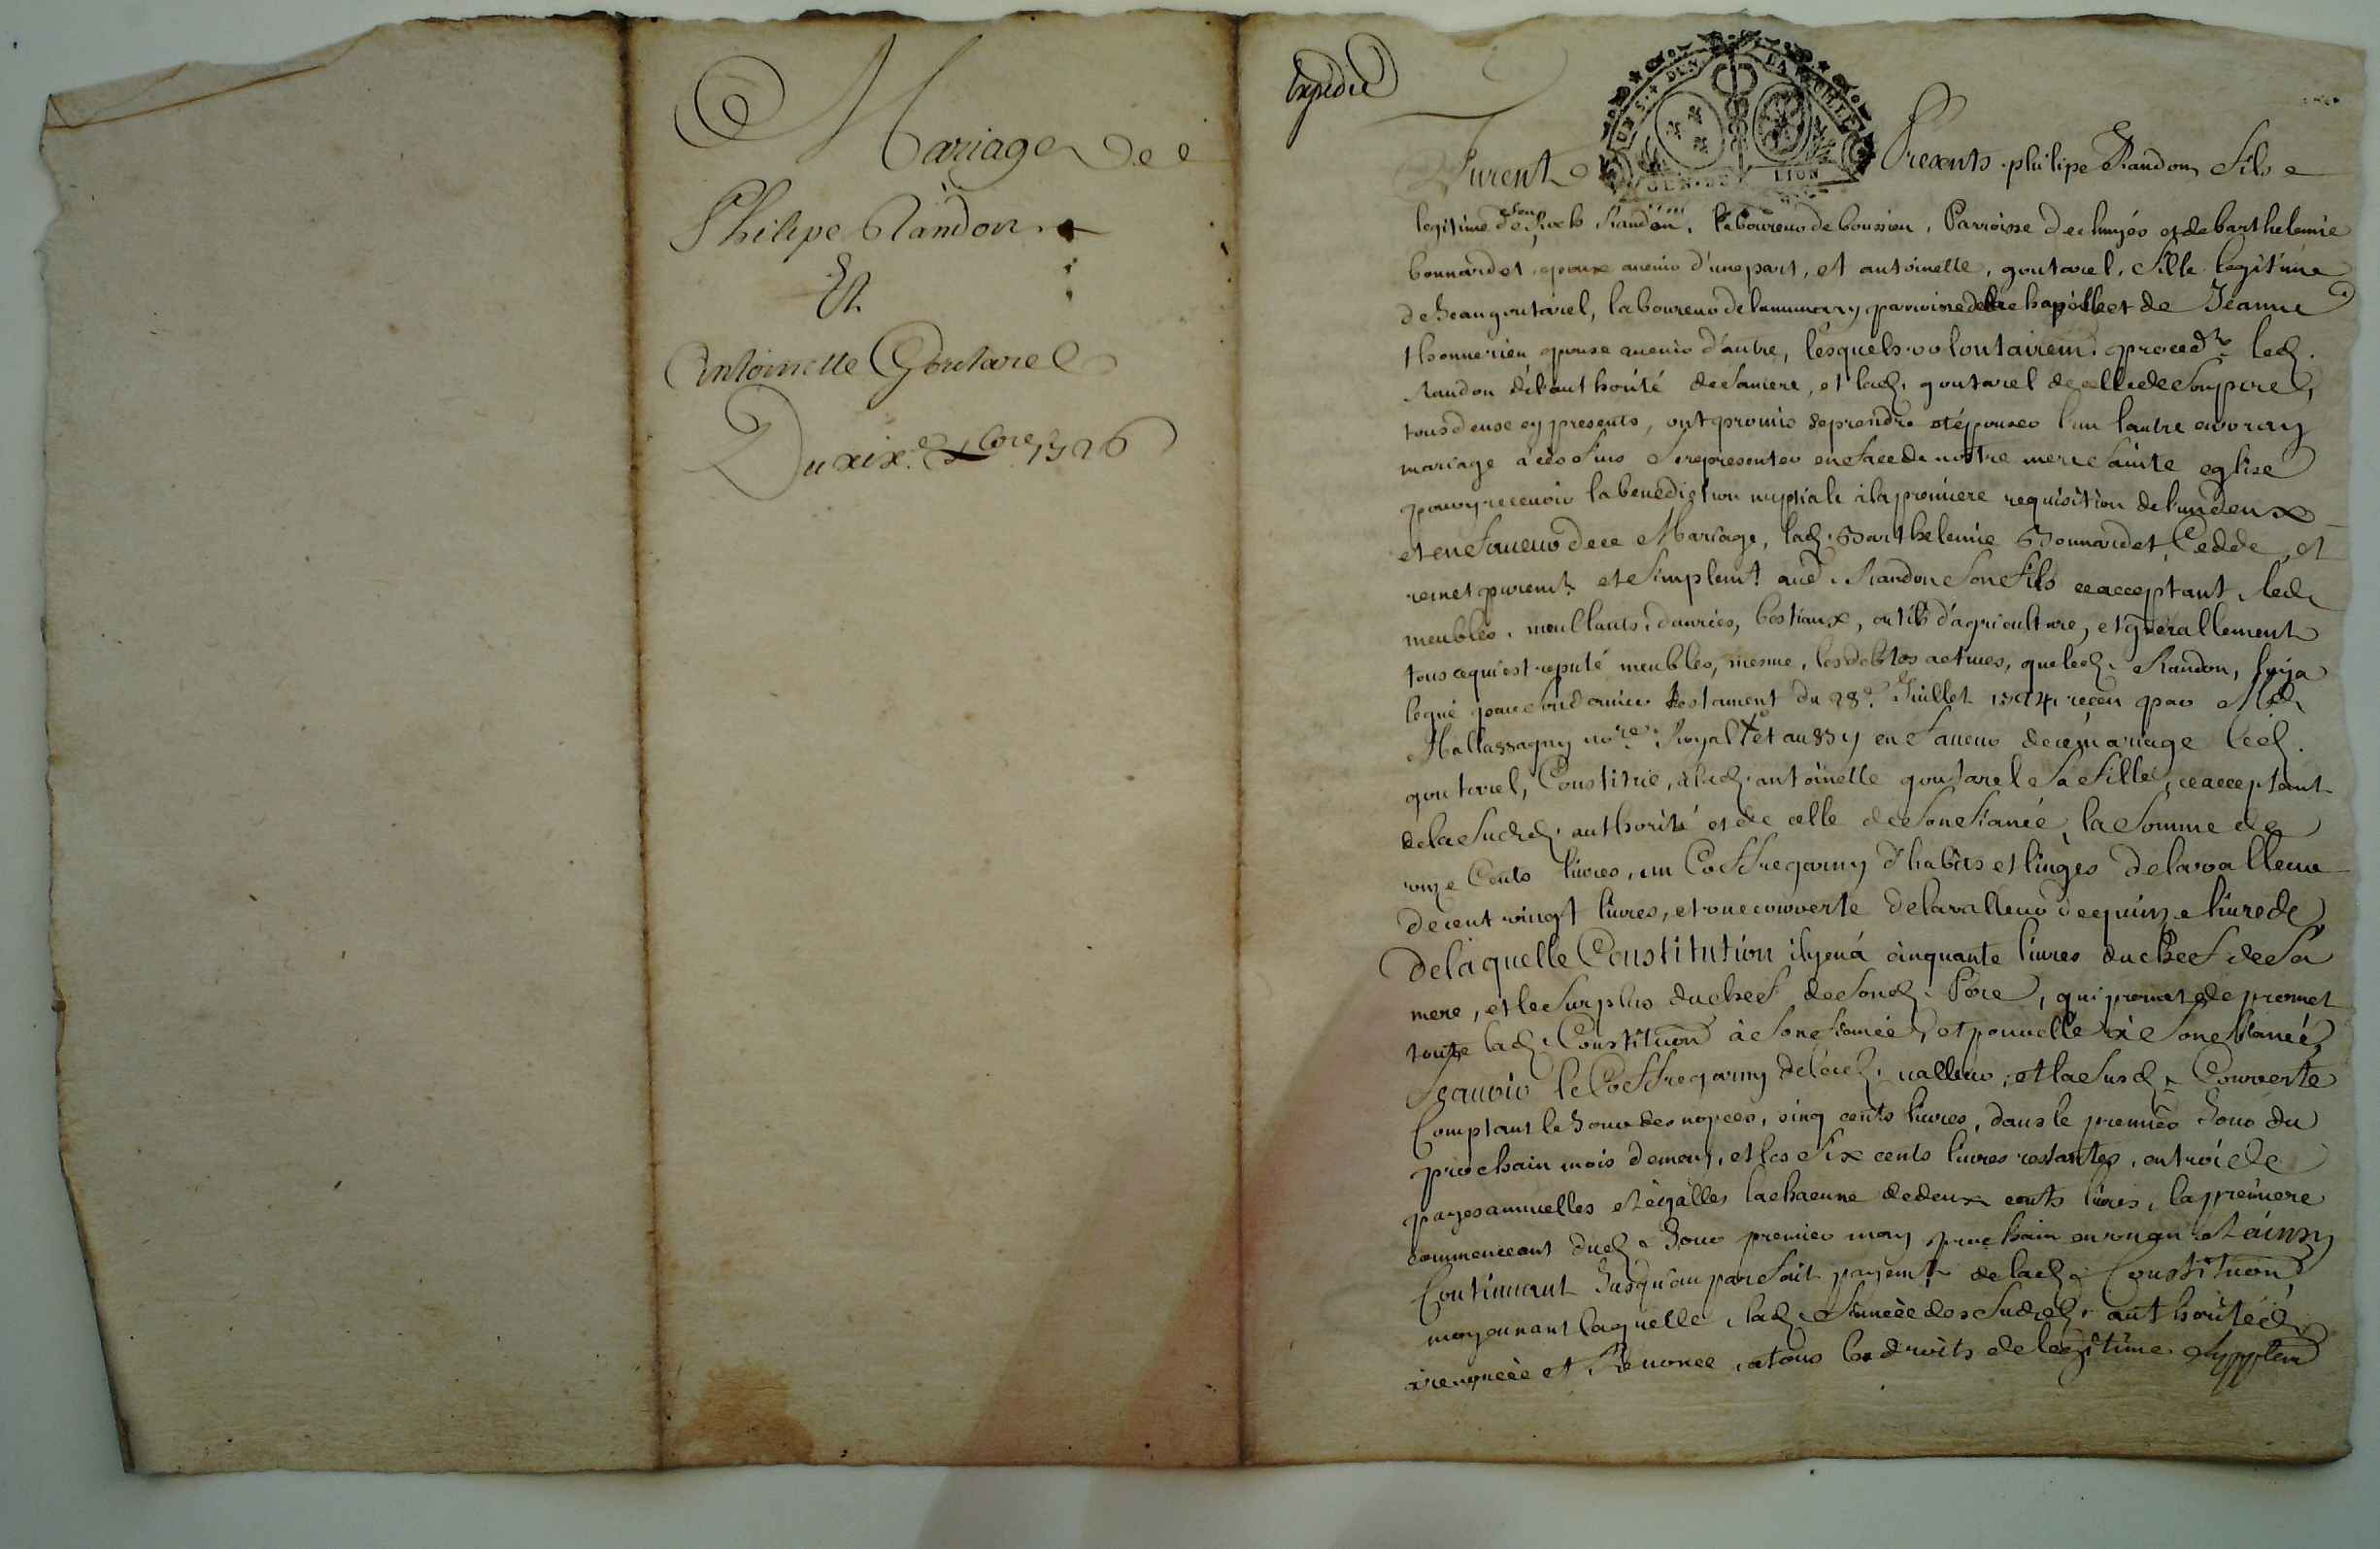 Mariage De
Philipe Randon
Et
Antoinette Goutarel
Du xix.e xbre 1726
Expedié
GEN DE LION
Furent Presents philipe Randon fils
legitime de feu Randon, laboureur de boussieu, Parroisse de et de barthelemie
bonnardet, d'une part, et antoinette, goutarel, fille legitime
de Jean goutarel, laboureur de parroisse de et de Jeanne
d'autre, lesquels volontairemt. procedt. led.
Randon de l'authorité de sa mere, et lad. goutarel de celle de son pere,
tous deux cy presents, ont promis se prendre et épouser l'un l'autre en vray
mariage à ces fins se representer en face de nostre mere sainte eglise
pour y recevoir la benediction nuptiale à la premiere requisition de l'un deux
et en faveur de ce Mariage, lad. Barthelemie Bonnardet, Cedde, et
remet puremt. et simplemt. aud. Randon son fils ce acceptant, led.
meubles, meullants, danrées, bestiaux, outils d'agriculture, et generallement
tous ce qui est reputé meubles, mesme, les debtes actives, que led. Randon, luy a
legué par son dernier testament du 28e. Juillet 1724 receu par Me
Mallassagny nore. Royal et aussy en faveur de ce mariage led.
goutarel, Constitue, à lad. antoinette goutarel sa fille, ce acceptant
de la susd. authorité et de celle de son fiancé, la somme de
onze Cents livres, un Coffre garny d'habits et linges de la valleur
de cent vingt livres, et une couverte de la valleur de quinze livres
De laquelle Constitution il y en a cinquante livres du chef de sa
mere, et le surplus du chef de sond. Pere, qui promet
toute lad. Constituon à et pour elle à son fiancé,
Scavoir le Coffre garny de lad. valleur, et la susd. Couverte
Comptant le Jour des nopces, cinq cents livres, dans le premier Jour du
prochain mois de may, et les six cents livres restantes, en trois
payes annuelles et égalles la chacune de deux cents livres, la premiere
commenceant dud. Jour premier may prochain en un an et ainsy
Continuant Jusqu'au parfait payemt. de lad. Constituon
moyennant laquelle, lad. fiancée des susd. authoritéd.
a renoncée et Renonce, a tous les droits de legitime